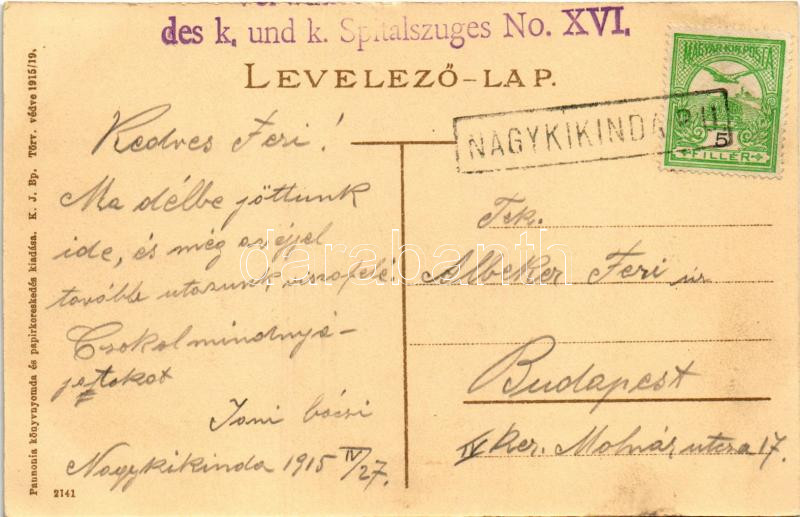 des k. und k. Spitalszuges No. XVI.
LEVELEZŐ-LAP.
MAGYAR·KIR·POSTA
5
FILLÉR
NAGYKIKINDA P.U.
Kedves Feri!
Ma délbe jöttunk
ide, és még az éjjel
tovább utazunk visszafelé.
Csokol mindnyá-
jatokat
Toni bácsi
Nagykikinda 1915 IV/27.
Tek.
Albeker Feri úr
Budapest
IV Ker. Molnár utcza 17.
Pannonia könyvnyomda és papirkereskedés kiadása. K. J. Bp. Törv. védve 1915/19.
2141
darabanth